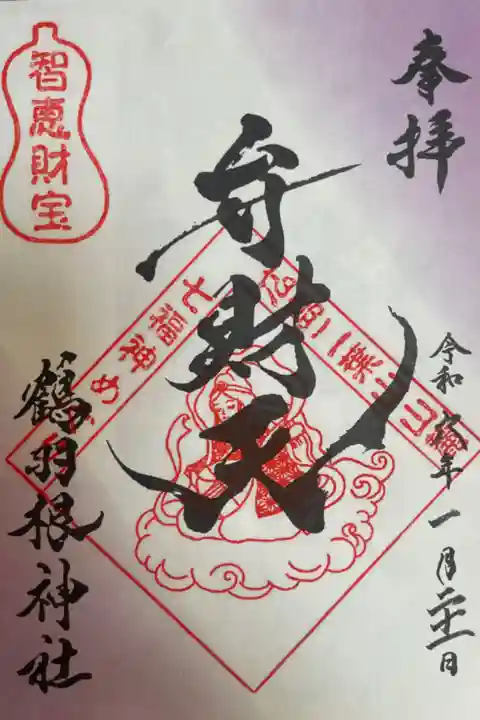 奉拝
令和六年一月二十一日
弁財天
智恵財宝
七福神め
二葉
鶴羽根神社